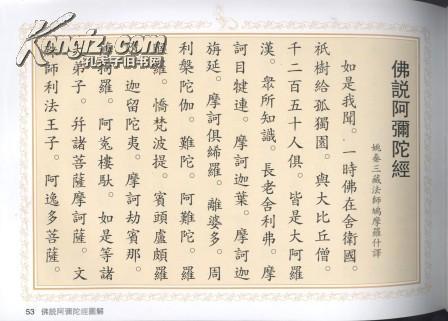 佛說阿彌陀經
姚秦三藏法師鳩摩羅什譯
如是我聞。一時佛在舍衛國。
祇樹給孤獨園。與大比丘僧。
千二百五十人俱。皆是大阿羅
漢。眾所知識。長老舍利弗。摩
訶目犍連。摩訶迦葉。摩訶迦
旃延。摩訶俱絺羅。離婆多。周
利槃陀伽。難陀。阿難陀。羅
羅。憍梵波提。賓頭盧頗羅
迦留陀夷。摩訶劫賓那。
拘羅。阿㝹樓馱。如是等諸
弟子。并諸菩薩摩訶薩。文
師利法王子。阿逸多菩薩。
53 佛說阿彌陀經圖解
Kongfz.com
孔夫子旧书网